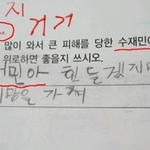 지 거 거
많이 와서 큰 피해를 당한 수재민
위로하면 좋을지 쓰시오.
민아 힌들겠지만
을 가져